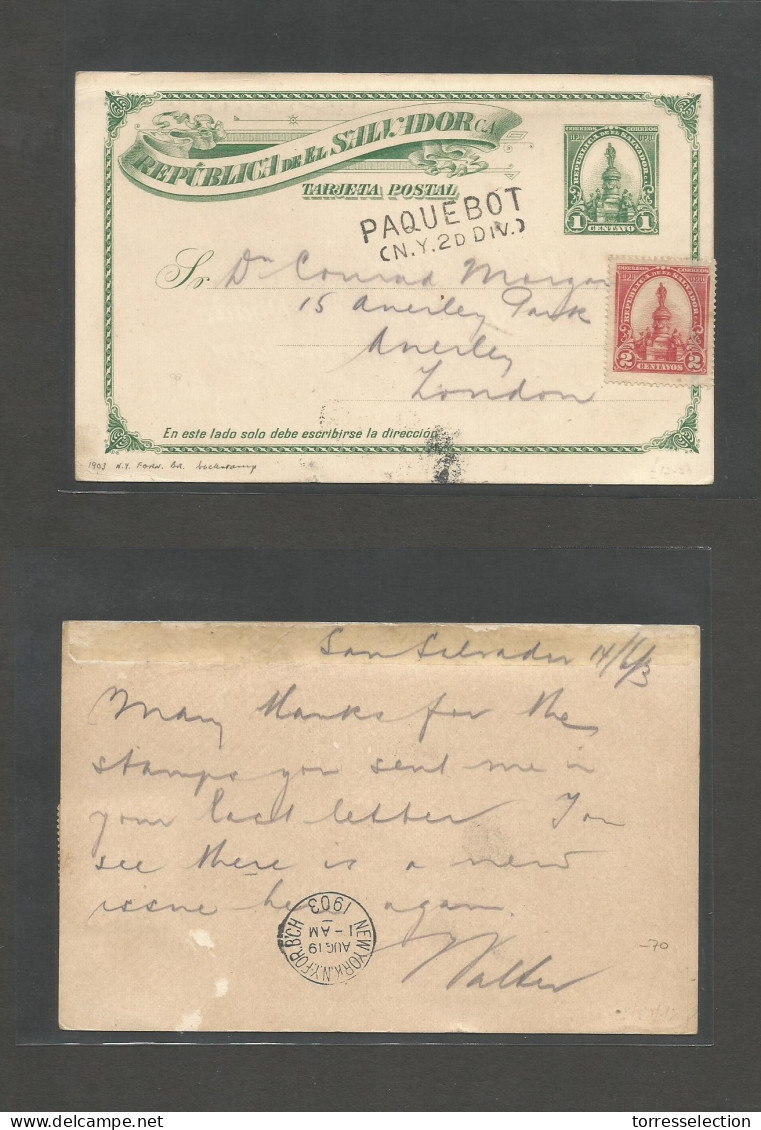 REPÚBLICA DE EL SALVADOR C.A.
TARJETA POSTAL
CORREOS CORREOS
REPUBLICA DE EL SALVADOR
1 CENTAVO 1
PAQUEBOT
(N.Y. 2D DIV.)
CORREOS CORREOS
REPUBLICA DE EL SALVADOR
2 CENTAVOS 2
Sr. Dn Conrad Morgan
15 Anerley Park
Anerley
London
En este lado solo debe escribirse la dirección
1903 N.Y. FORN. BR. backstamp
San Salvador
Many thanks for the
stamps you sent me in
your last letter You
see there is a new
issue here again
Walter
NEW YORK, N.Y. FOR. B'CH
AUG 19
1-AM
1903
-70
torresselection